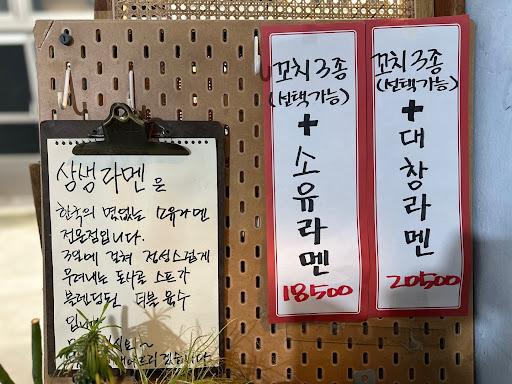 삼생라멘 은
한국의 몇없는
전문점입니다.
3일에 걸쳐 정성스럽게
우려내는 스프가
블렌딩된 더블 육수
입니다
꼬치 3종
(선택가능)
+
소유라멘
18500
꼬치 3종
(선택가능)
+
대창라멘
20500